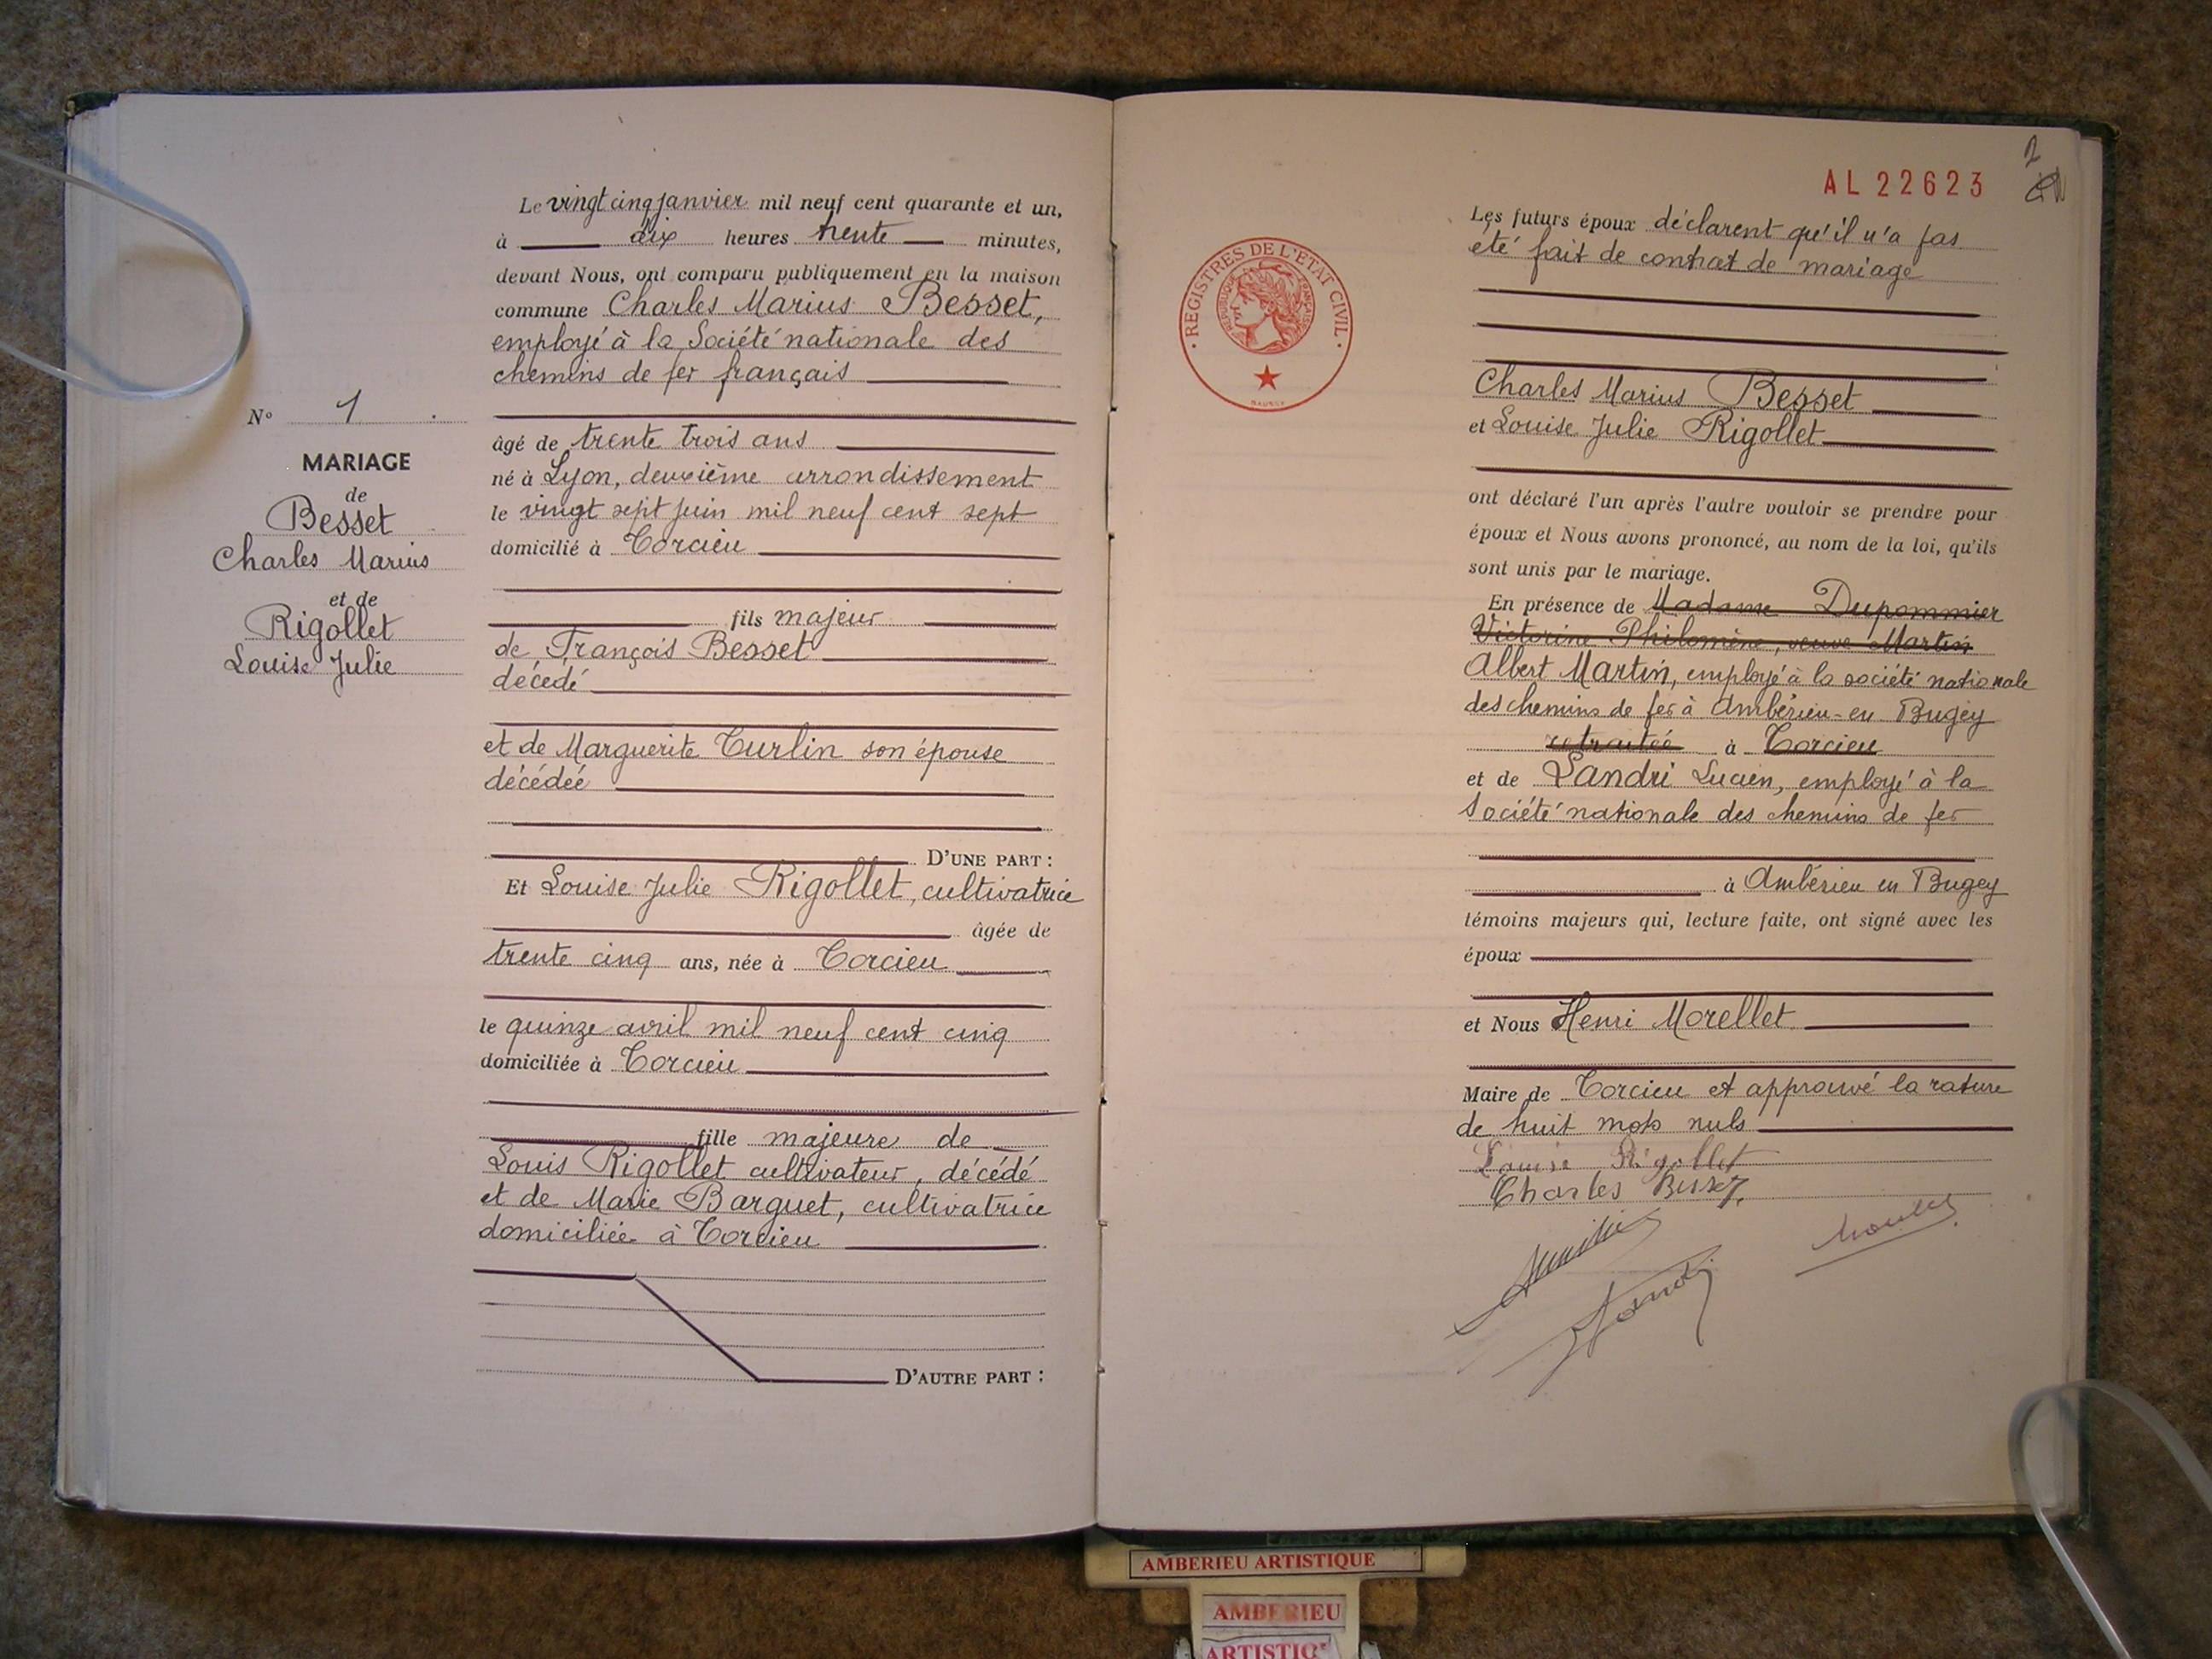 Le vingt cinq janvier mil neuf cent quarante et un,
à dix heures trente minutes,
devant Nous, ont comparu publiquement en la maison
commune Charles Marius Besset,
employé à la Société nationale des
chemins de fer français
âgé de trente trois ans
né à Lyon, deuxième arrondissement
le vingt sept juin mil neuf cent sept
domicilié à Torcieu
fils majeur
de François Besset
décédé
et de Marguerite Turlin son épouse
décédée
D'UNE PART :
Et Louise Julie Rigollet, cultivatrice
âgée de
trente cinq ans, née à Torcieu
le quinze avril mil neuf cent cinq
domiciliée à Torcieu
fille majeure de
Louis Rigollet cultivateur, décédé
et de Marie Barquet, cultivatrice
domiciliée à Torcieu
D'AUTRE PART :
N° 1
MARIAGE
de
Besset
Charles Marius
et de
Rigollet
Louise Julie
AL 22623
2
REGISTRES DE L'ÉTAT CIVIL
RÉPUBLIQUE FRANÇAISE
Les futurs époux déclarent qu'il n'a pas
eté fait de contrat de mariage
Charles Marius Besset
et Louise Julie Rigollet
ont déclaré l'un après l'autre vouloir se prendre pour
époux et Nous avons prononcé, au nom de la loi, qu'ils
sont unis par le mariage.
En présence de Madame Dupommier
Victorine Philomène, veuve Martin
Albert Martin, employé à la société nationale
des chemins de fer à Ambérieu-en Bugey
retraitée à Torcieu
et de Landri Lucien, employé à la
Société nationale des chemins de fer
à Ambérieu en Bugey
témoins majeurs qui, lecture faite, ont signé avec les
époux
et Nous Henri Morellet
Maire de Torcieu et approuvé la rature
de huit mots nuls
Louise Rigollet
Charles Besset
AMBERIEU ARTISTIQUE
AMBERIEU
ARTISTIQ